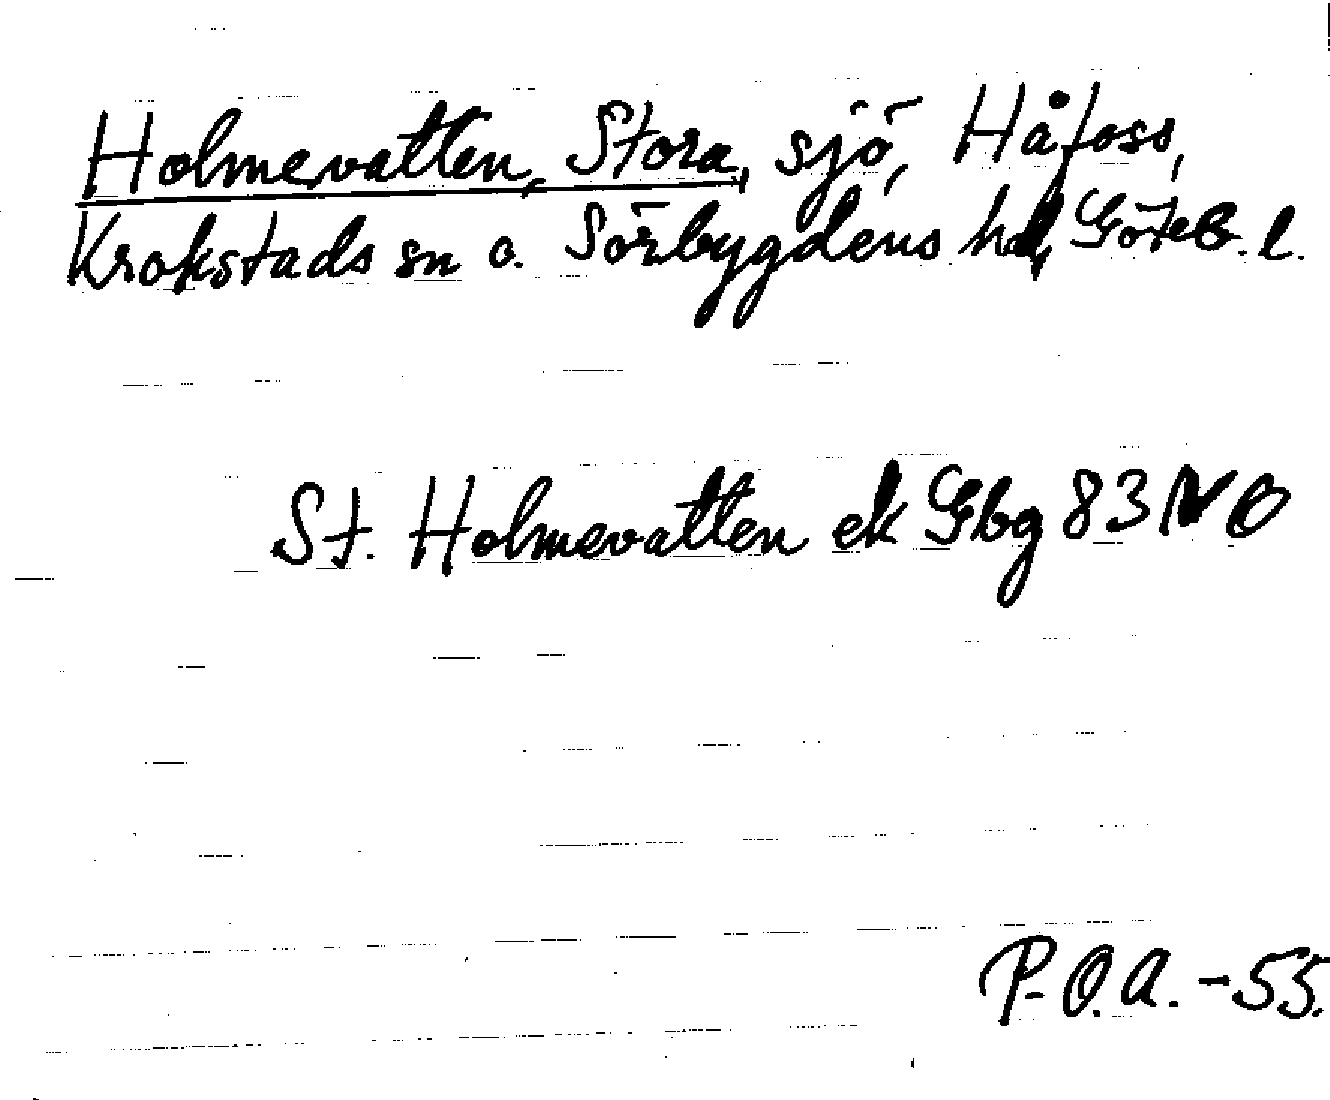 Holmevatten, Stora, sjö, Håfoss,
Krokstads sn o. Sörbygdens hd, Göteb. l.
St. Holmevatten ek Gbg 83 NO
P.O.A. -55.